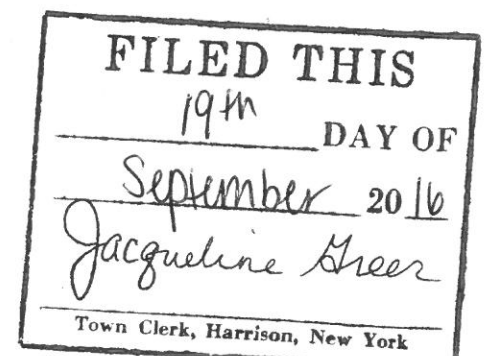 FILED THIS
19th DAY OF
September 2016
Jacqueline Greer
Town Clerk, Harrison, New York